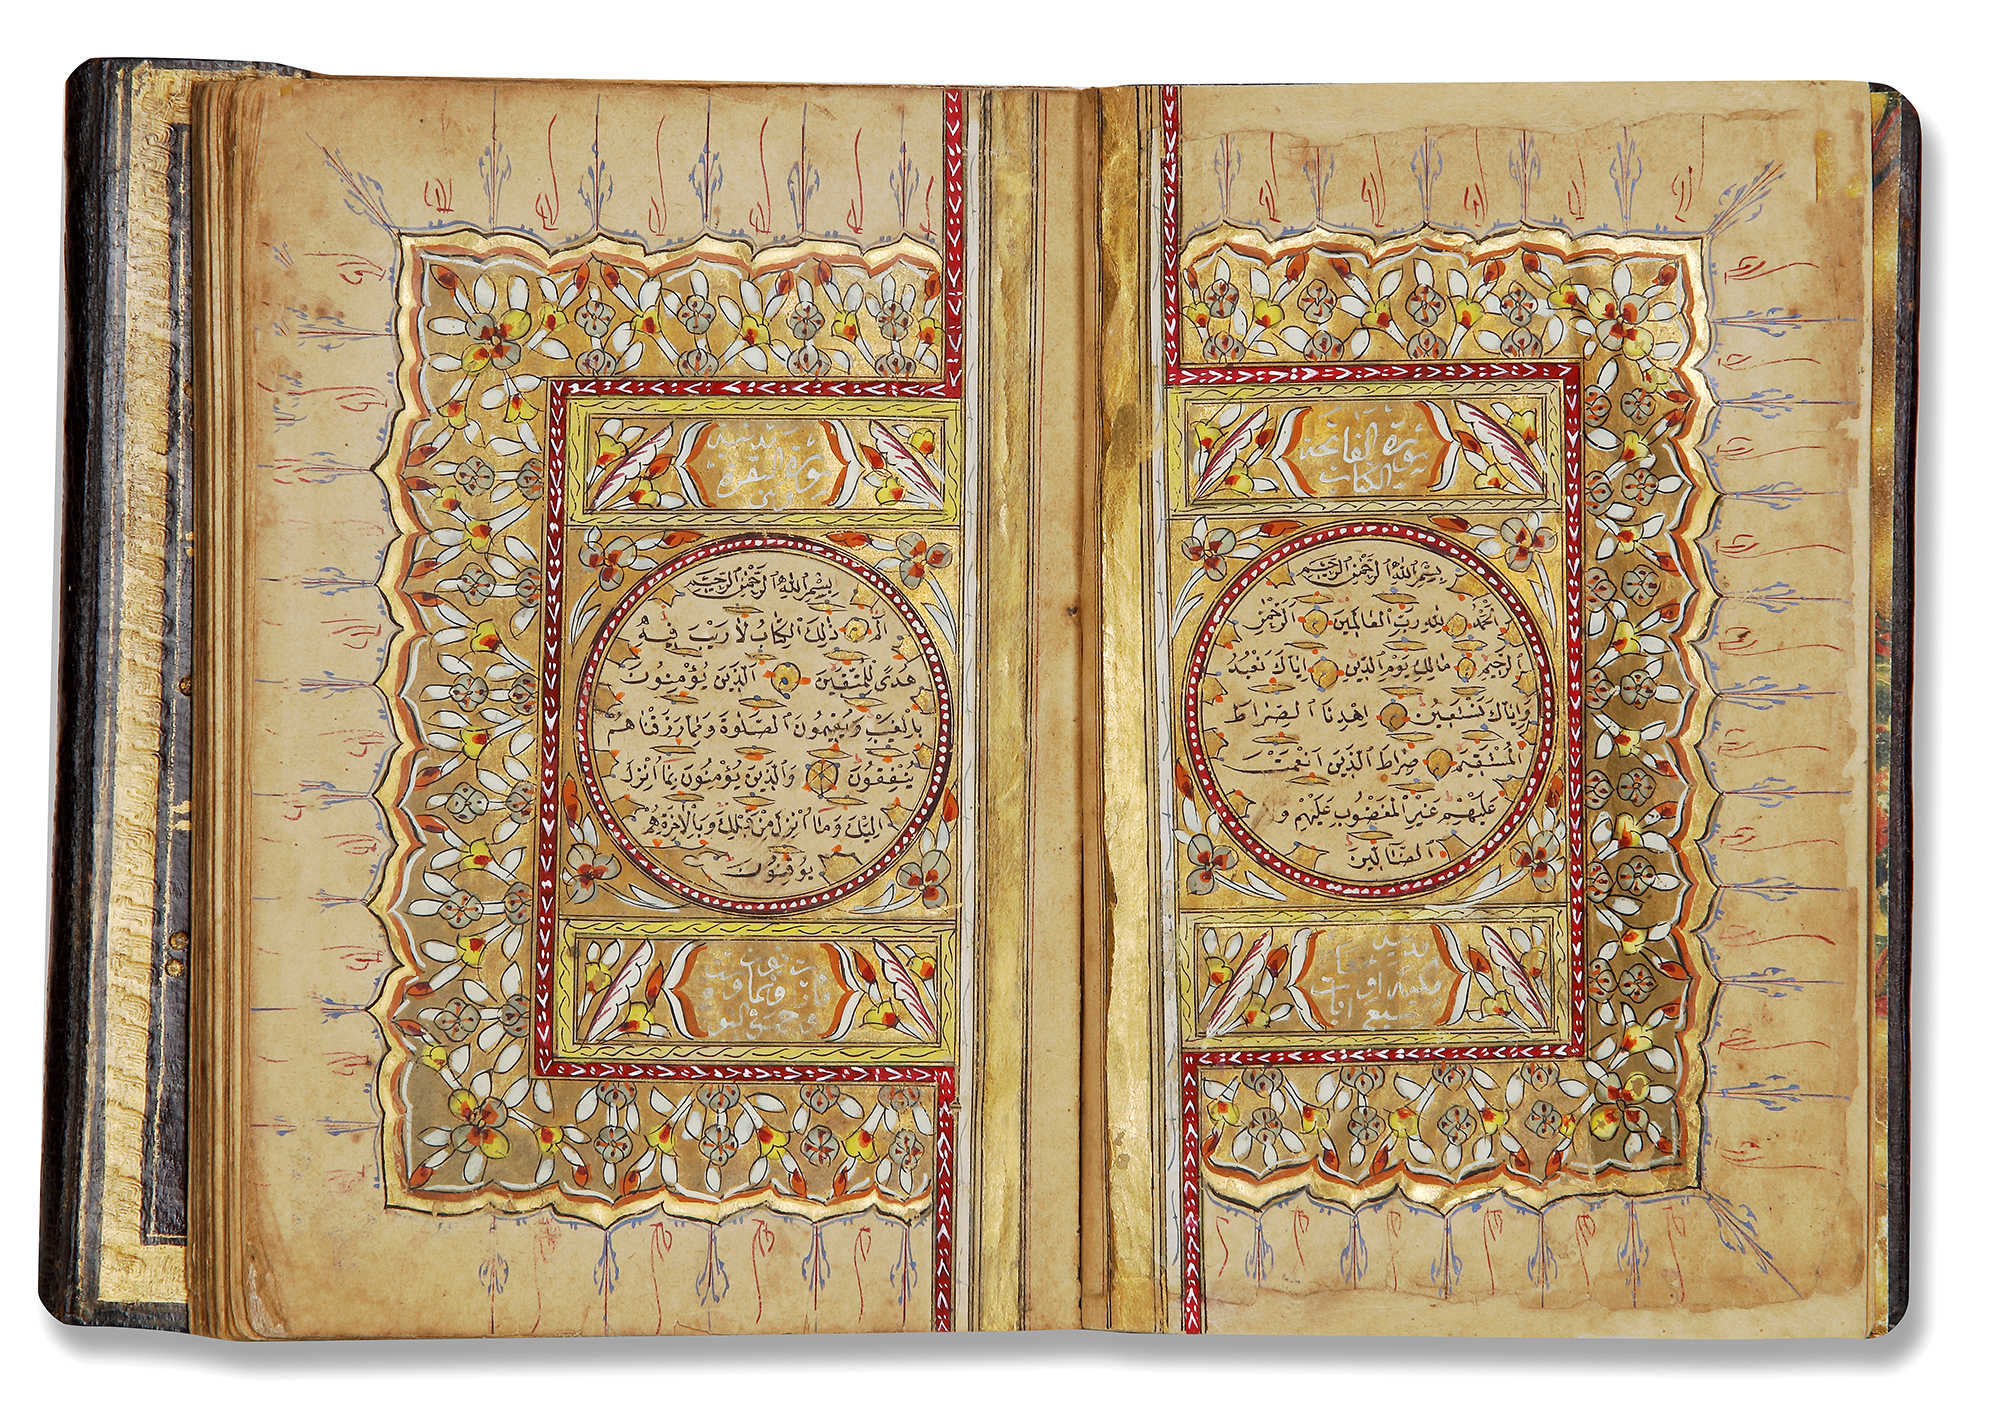 سورة الفاتحة
الكتاب
بِسْمِ اللّٰهِ الرَّحْمٰنِ الرَّحِيمِ
اَلْحَمْدُ لِلّٰهِ رَبِّ الْعَالَمِينَ الرَّحْمٰنِ
الرَّحِيمِ مَالِكِ يَوْمِ الدِّينِ اِيَّاكَ نَعْبُدُ
وَاِيَّاكَ نَسْتَعِينُ اِهْدِنَا الصِّرَاطَ
الْمُسْتَقِيمَ صِرَاطَ الَّذِينَ اَنْعَمْتَ
عَلَيْهِمْ غَيْرِ الْمَغْضُوبِ عَلَيْهِمْ وَ
لَا الضَّالِّينَ
سبع ايات
سورة البقرة
بِسْمِ اللّٰهِ الرَّحْمٰنِ الرَّحِيمِ
الٓمٓ ذٰلِكَ الْكِتَابُ لَا رَيْبَ فِيهِ
هُدًى لِلْمُتَّقِينَ اَلَّذِينَ يُؤْمِنُونَ
بِالْغَيْبِ وَيُقِيمُونَ الصَّلٰوةَ وَمِمَّا رَزَقْنَاهُمْ
يُنْفِقُونَ وَالَّذِينَ يُؤْمِنُونَ بِمَا اُنْزِلَ
اِلَيْكَ وَمَا اُنْزِلَ مِنْ قَبْلِكَ وَبِالْاٰخِرَةِ هُمْ
يُوقِنُونَ